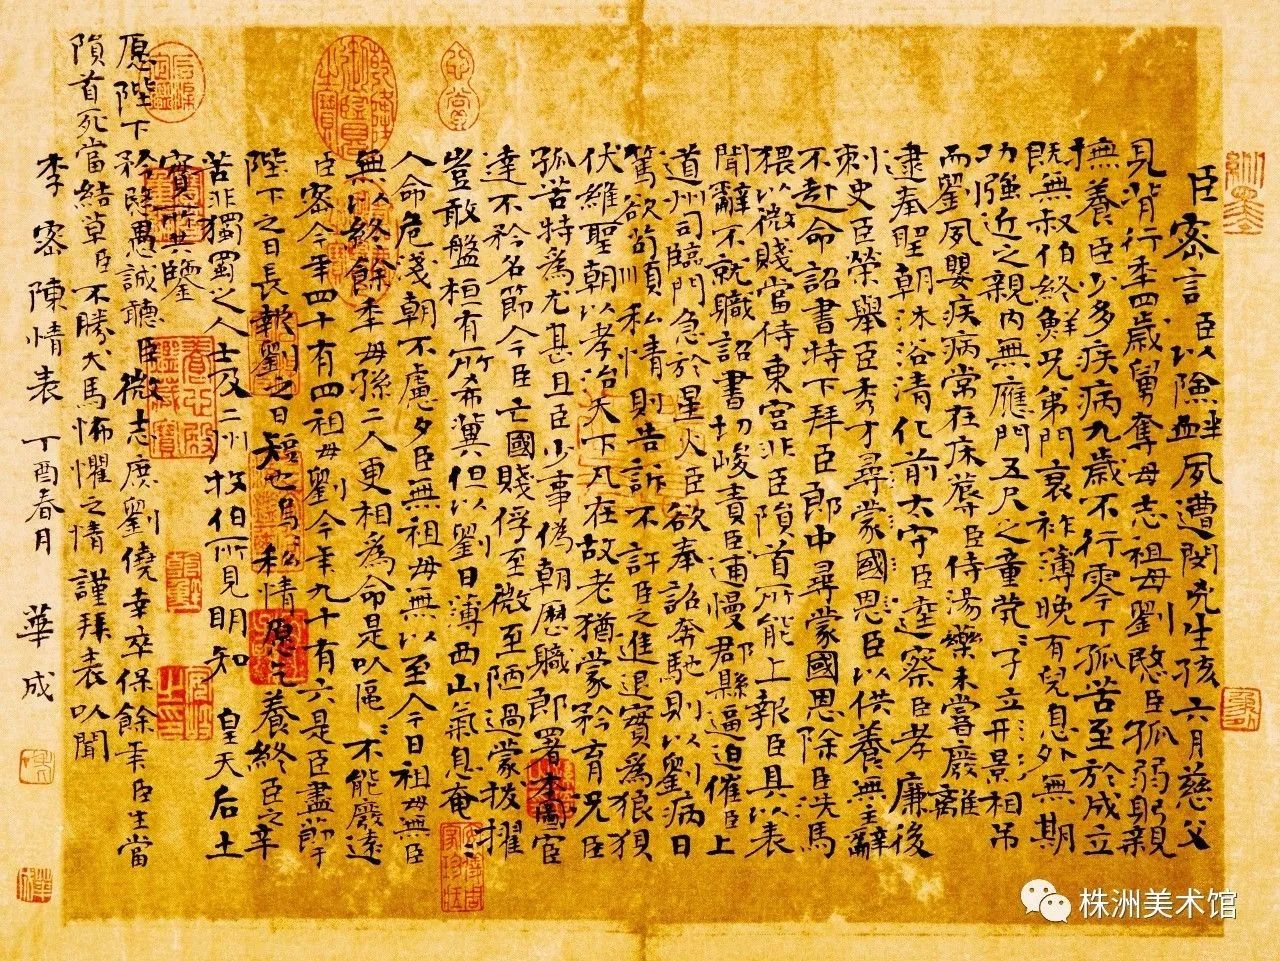 臣密言臣以險衅夙遭閔凶生孩六月慈父
見背行年四歲舅奪母志祖母劉愍臣孤弱躬親
撫養臣少多疾病九歲不行零丁孤苦至於成立
既無叔伯終鮮兄弟門衰祚薄晚有兒息外無期
功強近之親內無應門五尺之童煢〻孑立形影相吊
而劉夙嬰疾病常在床蓐臣侍湯藥未嘗廢離
逮奉聖朝沐浴清化前太守臣逵察臣孝廉後
刺史臣榮舉臣秀才尋蒙國恩臣以供養無主辭
不赴命詔書特下拜臣郎中尋蒙國恩除臣洗馬
猥以微賤當侍東宮非臣隕首所能上報臣具以表
聞辭不就職詔書切峻責臣逋慢郡縣逼迫催臣上
道州司臨門急於星火臣欲奉詔奔馳則以劉病日
篤欲苟順私情則告訴不許臣之進退實為狼狽
伏維聖朝以孝治天下凡在故老猶蒙矜育況臣
孤苦特為尤甚且臣少事偽朝歷職郎署本圖宦
達不矜名節今臣亡國賤俘至微至陋過蒙拔擢
豈敢盤桓有所希冀但以劉日薄西山氣息奄〻
人命危淺朝不慮夕臣無祖母無以至今日祖母無臣
無以終餘年母孫二人更相為命是以區〻不能廢遠
臣密今年四十有四祖母劉今年九十有六是臣盡節于
陛下之日長報劉之日短也烏私情愿乞養終臣之辛
苦非獨蜀之人士及二州牧伯所見明知皇天后土
實所共鑒
愿陛下矜愍愚誠聽臣微志庶劉僥幸卒保餘年臣生當
隕首死當結草臣不勝犬馬怖懼之情謹拜表以聞
李密陳情表 丁酉春月 華成
株洲美术馆